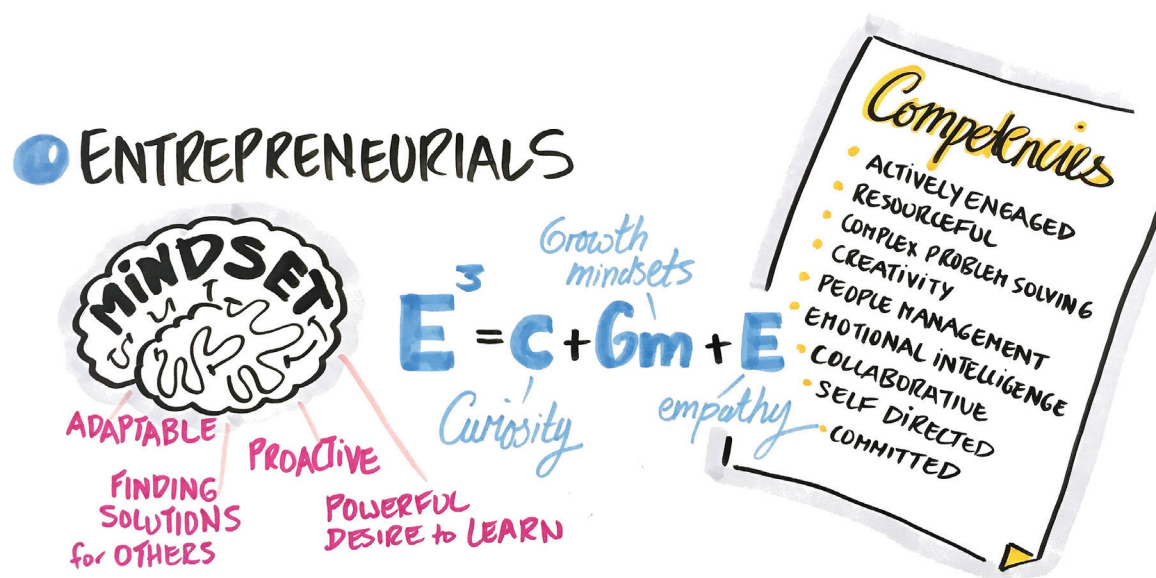 ENTREPRENEURIALS
MiNDSET
ADAPTABLE
FINDING
SOLUTIONS
for OTHERS
PROACTIVE
POWERFUL
DESIRE to LEARN
Growth
mindsets
E³ = C + Gm + E
Curiosity
empathy
Competencies
• ACTIVELY ENGAGED
• RESOURCEFUL
• COMPLEX PROBLEM SOLVING
• CREATIVITY
• PEOPLE MANAGEMENT
• EMOTIONAL iNTELLIGENCE
• COLLABORATIVE
• SELF DIRECTED
• COMMITTED